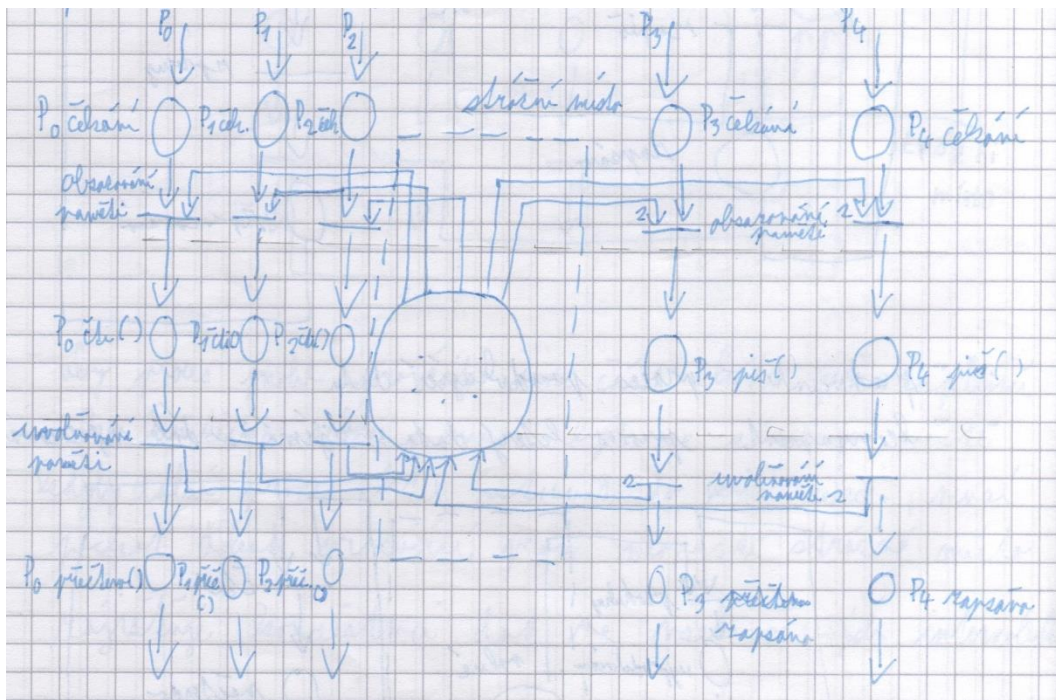 P0 P1 P2 P3 P4
P0 čekání P1 ček. P2 ček strážní místo P3 čekání P4 čekání
obsazování
paměti
2 obsazování 2
paměti
P0 čte() P1 čte() P2 čte() P3 píš() P4 píš()
uvolňování
paměti
2 uvolňování
paměti 2
P0 přečteno() P1 přeč P2 přeč. P3 P4 zapsáno
()
zapsáno